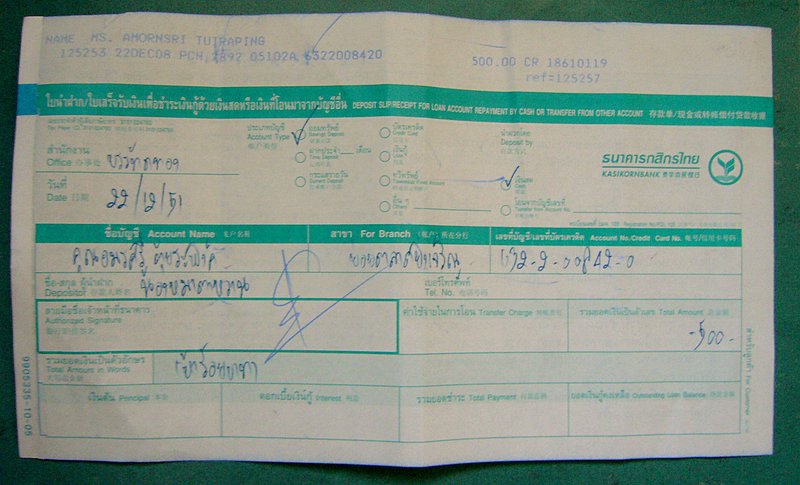 NAME MS. AMORNSRI TUTRAPING
125253 22DEC08 PCN, 2892 05102A 6322008420 500.00 CR 18610119
ref=125257
ใบนำฝาก/ใบเสร็จรับเงินเพื่อชำระเงินกู้ด้วยเงินสดหรือเงินที่โอนมาจากบัญชีอื่น DEPOSIT SLIP/RECEIPT FOR LOAN ACCOUNT REPAYMENT BY CASH OR TRANSFER FROM OTHER ACCOUNT 存款单/现金或转帐偿付贷款收据
สำนักงาน
Office 办事处
วันที่
Date 日期 22/12/51
ประเภทบัญชี
Account Type
帐户类别
ออมทรัพย์
Savings Deposit
ฝากประจำ เดือน
Time Deposit
กระแสรายวัน
Current Deposit
บัตรเครดิต
Credit Card
เงินกู้
Loan
ทวีทรัพย์
Taweesup Fixed Account
อื่น ๆ
Others
นำฝากโดย
Deposit by
เงินสด
Cash
โอนจากบัญชีเลขที่
Transfer from Account No.
ธนาคารกสิกรไทย
KASIKORNBANK 泰华农民银行
ชื่อบัญชี Account Name 帐户名称 สาขา For Branch (帐户) 所在分行 เลขที่บัญชี/เลขที่บัตรเครดิต Account No./Credit Card No. 帐号/信用卡号码
632-2-00842-0
ชื่อ-สกุล ผู้นำฝาก
Depositor 存款人姓名
เบอร์โทรศัพท์
Tel. No. 电话号码
ลายมือชื่อเจ้าหน้าที่ธนาคาร
Authorized Signature
银行职员签名
ค่าใช้จ่ายในการโอน Transfer Charge 转帐费用
รวมยอดเงินเป็นตัวเลข Total Amount 总金额
-500-
รวมยอดเงินเป็นตัวอักษร
Total Amount in Words
大写总金额
ห้าร้อยบาท
เงินต้น Principal 本金 ดอกเบี้ยเงินกู้ Interest 利息 รวมยอดชำระ Total Payment 付款总额 ยอดเงินกู้คงเหลือ Outstanding Loan Balance
9905335-10-05
สำหรับลูกค้า For Customer